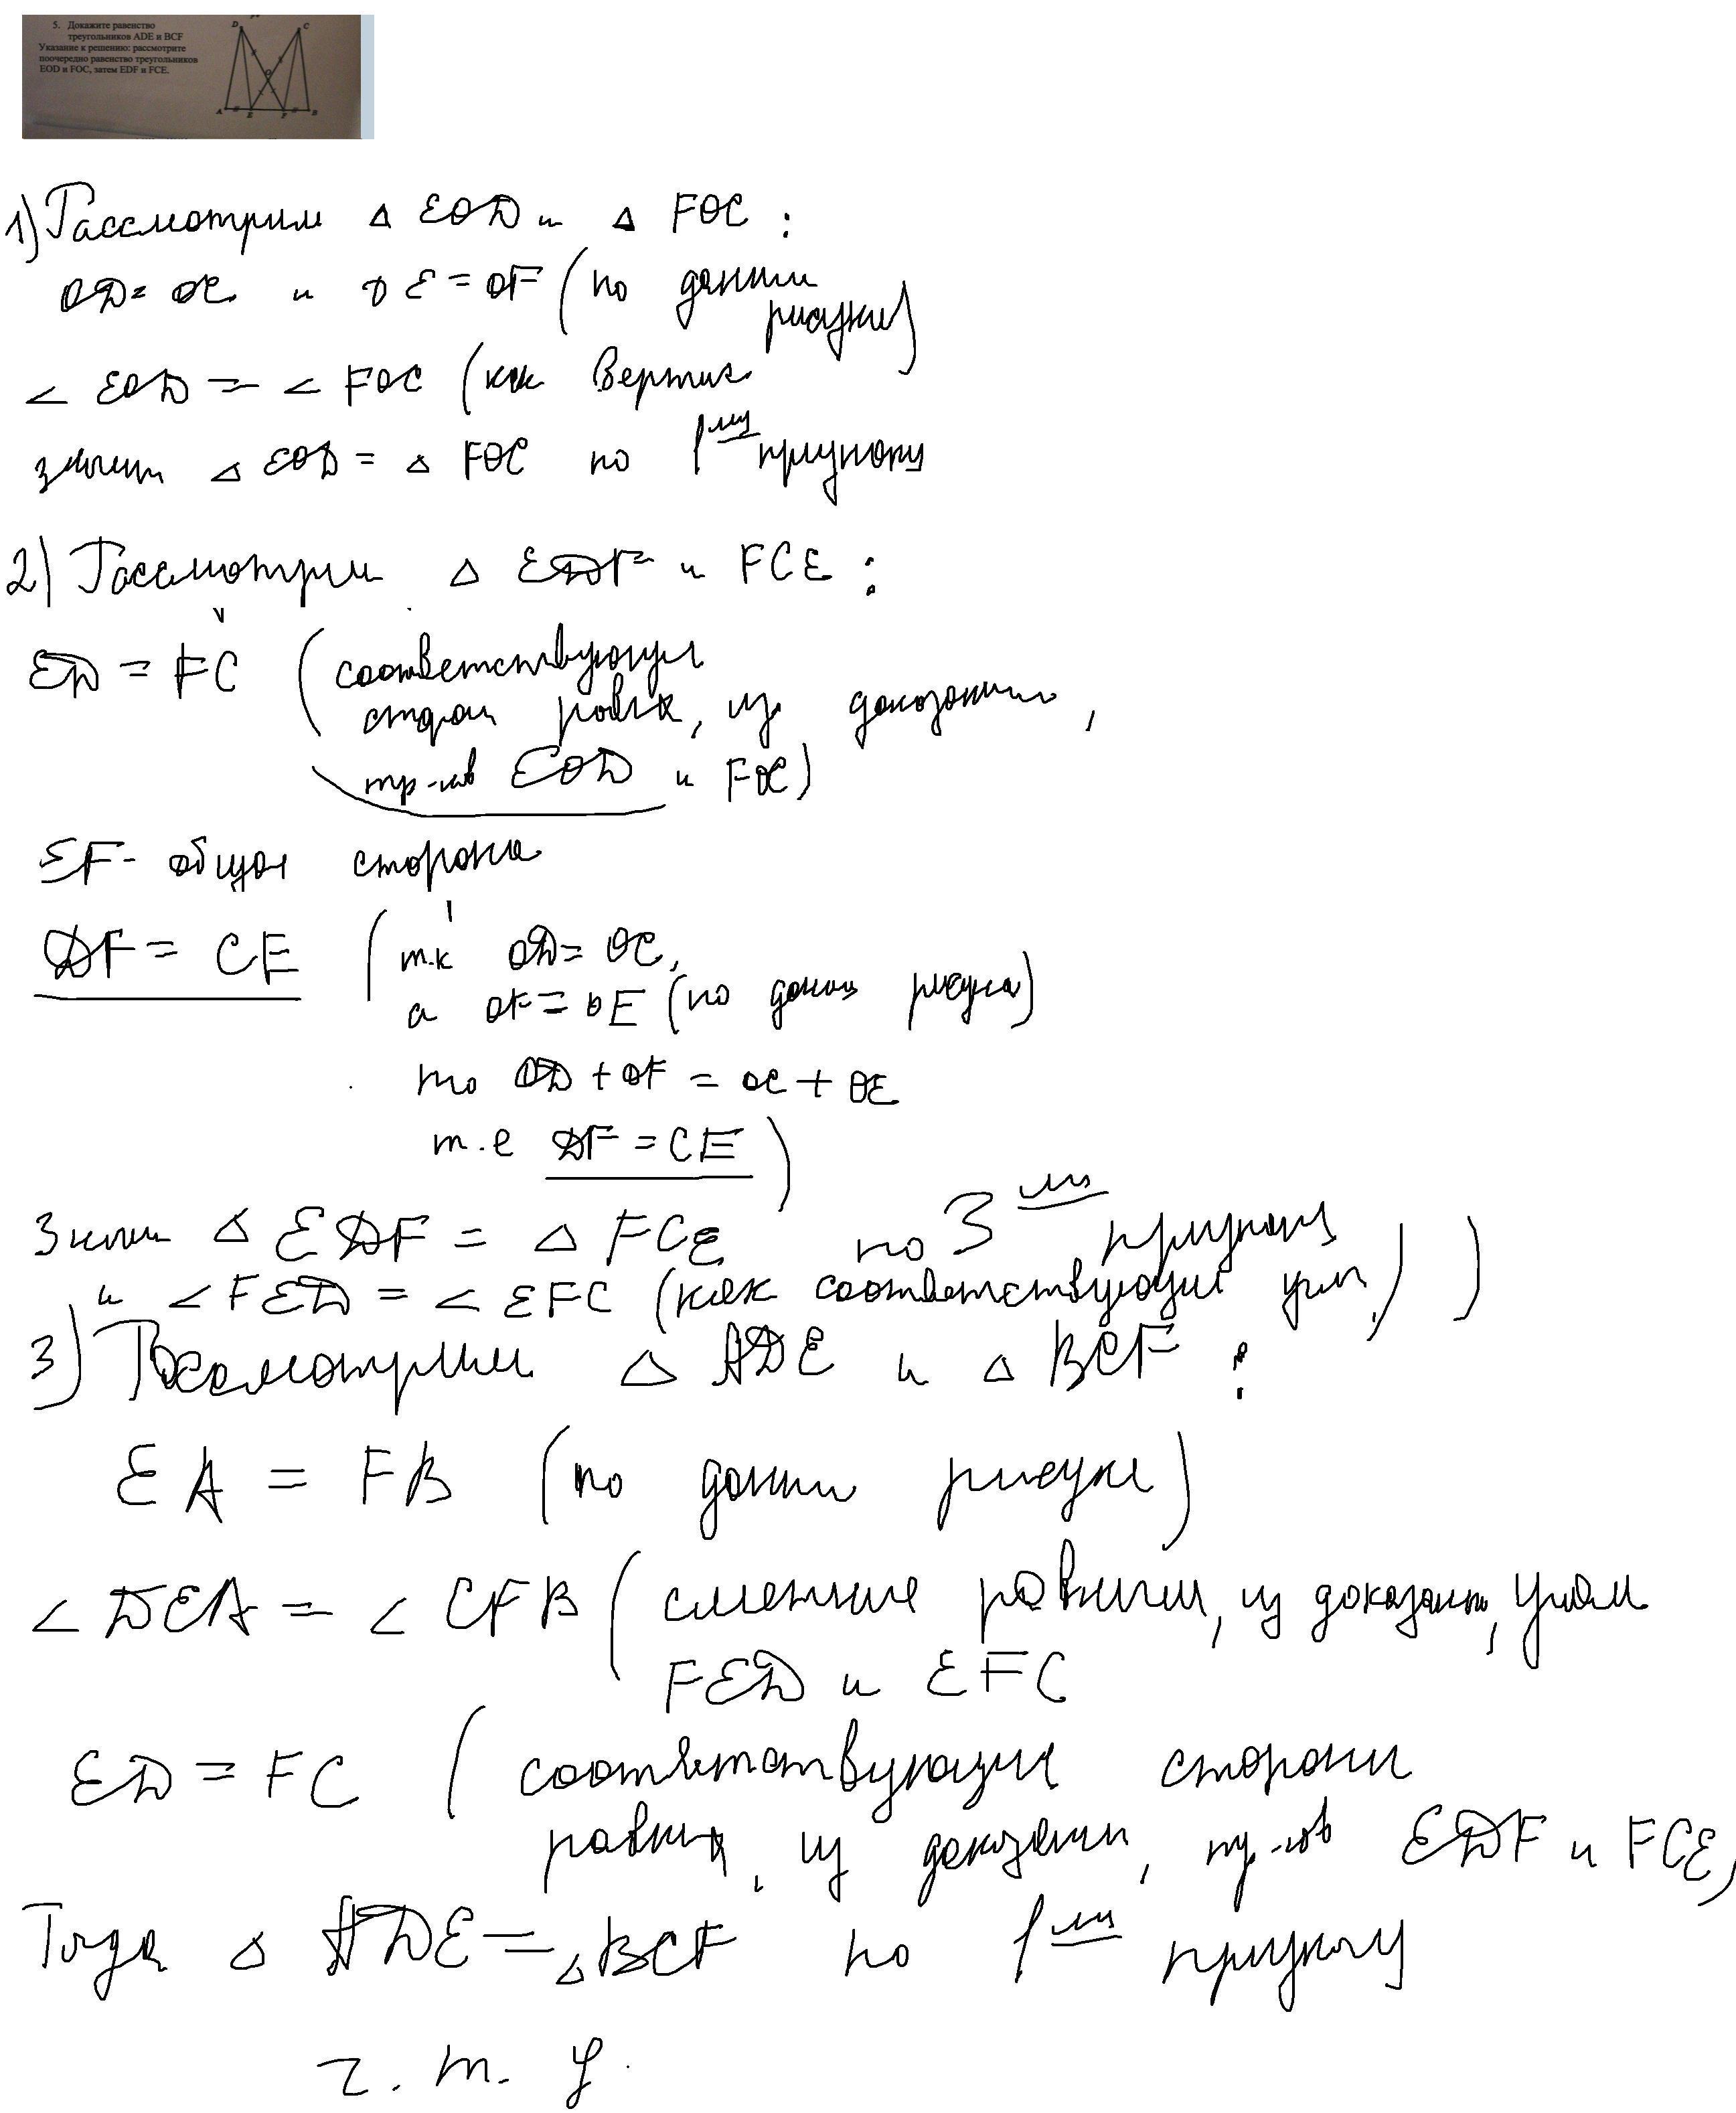 5. Докажите равенство
треугольников ADE и BCF
Указание к решению: рассмотрите
поочередно равенство треугольников
EOD и FOC, затем EDF и FCE.
D
C
O
A
E
F
B
1) Рассмотрим △ EOD и △ FOC :
OD = OC и OE = OF (по данным
рисунка)
∠ EOD = ∠ FOC (как вертик
значит △ EOD = △ FOC по 1му признаку
2) Рассмотрим △ EDF и FCE :
ED = FC (соответствующие
сторон равн, из доказанных,
тр-ков EOD и FOC)
EF - общая сторона
DF = CE (т.к OD = OC,
а OF = OE (по данн рисунка)
то OD + OF = OC + OE
т.е DF = CE )
Значит △ EDF = △ FCE по 3му признаку
и ∠ FED = ∠ EFC (как соответствующие углы))
3) Рассмотрим △ ADE и △ BCF :
EA = FB (по данным рисунка)
∠ DEA = ∠ CFB (смежные равным, из доказанн, углам
FED и EFC
ED = FC (соответствующие стороны
равных, из доказанн, тр-ков EDF и FCE)
Тогда △ ADE = △ BCF по 1му признаку
ч. т. д.